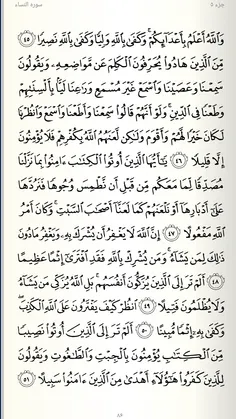 جزء ٥ سورة النساء
وَاللَّهُ أَعْلَمُ بِأَعْدَائِكُمْ وَكَفَىٰ بِاللَّهِ وَلِيًّا وَكَفَىٰ بِاللَّهِ نَصِيرًا ٤٥
مِنَ الَّذِينَ هَادُوا يُحَرِّفُونَ الْكَلِمَ عَن مَّوَاضِعِهِ وَيَقُولُونَ
سَمِعْنَا وَعَصَيْنَا وَاسْمَعْ غَيْرَ مُسْمَعٍ وَرَاعِنَا لَيًّا بِأَلْسِنَتِهِمْ
وَطَعْنًا فِي الدِّينِ وَلَوْ أَنَّهُمْ قَالُوا سَمِعْنَا وَأَطَعْنَا وَاسْمَعْ وَانظُرْنَا
لَكَانَ خَيْرًا لَّهُمْ وَأَقْوَمَ وَلَٰكِن لَّعَنَهُمُ اللَّهُ بِكُفْرِهِمْ فَلَا يُؤْمِنُونَ
إِلَّا قَلِيلًا ٤٦ يَا أَيُّهَا الَّذِينَ أُوتُوا الْكِتَابَ آمِنُوا بِمَا نَزَّلْنَا
مُصَدِّقًا لِّمَا مَعَكُم مِّن قَبْلِ أَن نَّطْمِسَ وُجُوهًا فَنَرُدَّهَا
عَلَىٰ أَدْبَارِهَا أَوْ نَلْعَنَهُمْ كَمَا لَعَنَّا أَصْحَابَ السَّبْتِ وَكَانَ أَمْرُ
اللَّهِ مَفْعُولًا ٤٧ إِنَّ اللَّهَ لَا يَغْفِرُ أَن يُشْرَكَ بِهِ وَيَغْفِرُ مَا دُونَ
ذَٰلِكَ لِمَن يَشَاءُ وَمَن يُشْرِكْ بِاللَّهِ فَقَدِ افْتَرَىٰ إِثْمًا عَظِيمًا
٤٨ أَلَمْ تَرَ إِلَى الَّذِينَ يُزَكُّونَ أَنفُسَهُم بَلِ اللَّهُ يُزَكِّي مَن يَشَاءُ
وَلَا يُظْلَمُونَ فَتِيلًا ٤٩ انظُرْ كَيْفَ يَفْتَرُونَ عَلَى اللَّهِ الْكَذِبَ
وَكَفَىٰ بِهِ إِثْمًا مُّبِينًا ٥٠ أَلَمْ تَرَ إِلَى الَّذِينَ أُوتُوا نَصِيبًا
مِّنَ الْكِتَابِ يُؤْمِنُونَ بِالْجِبْتِ وَالطَّاغُوتِ وَيَقُولُونَ
لِلَّذِينَ كَفَرُوا هَٰؤُلَاءِ أَهْدَىٰ مِنَ الَّذِينَ آمَنُوا سَبِيلًا ٥١
٨٦